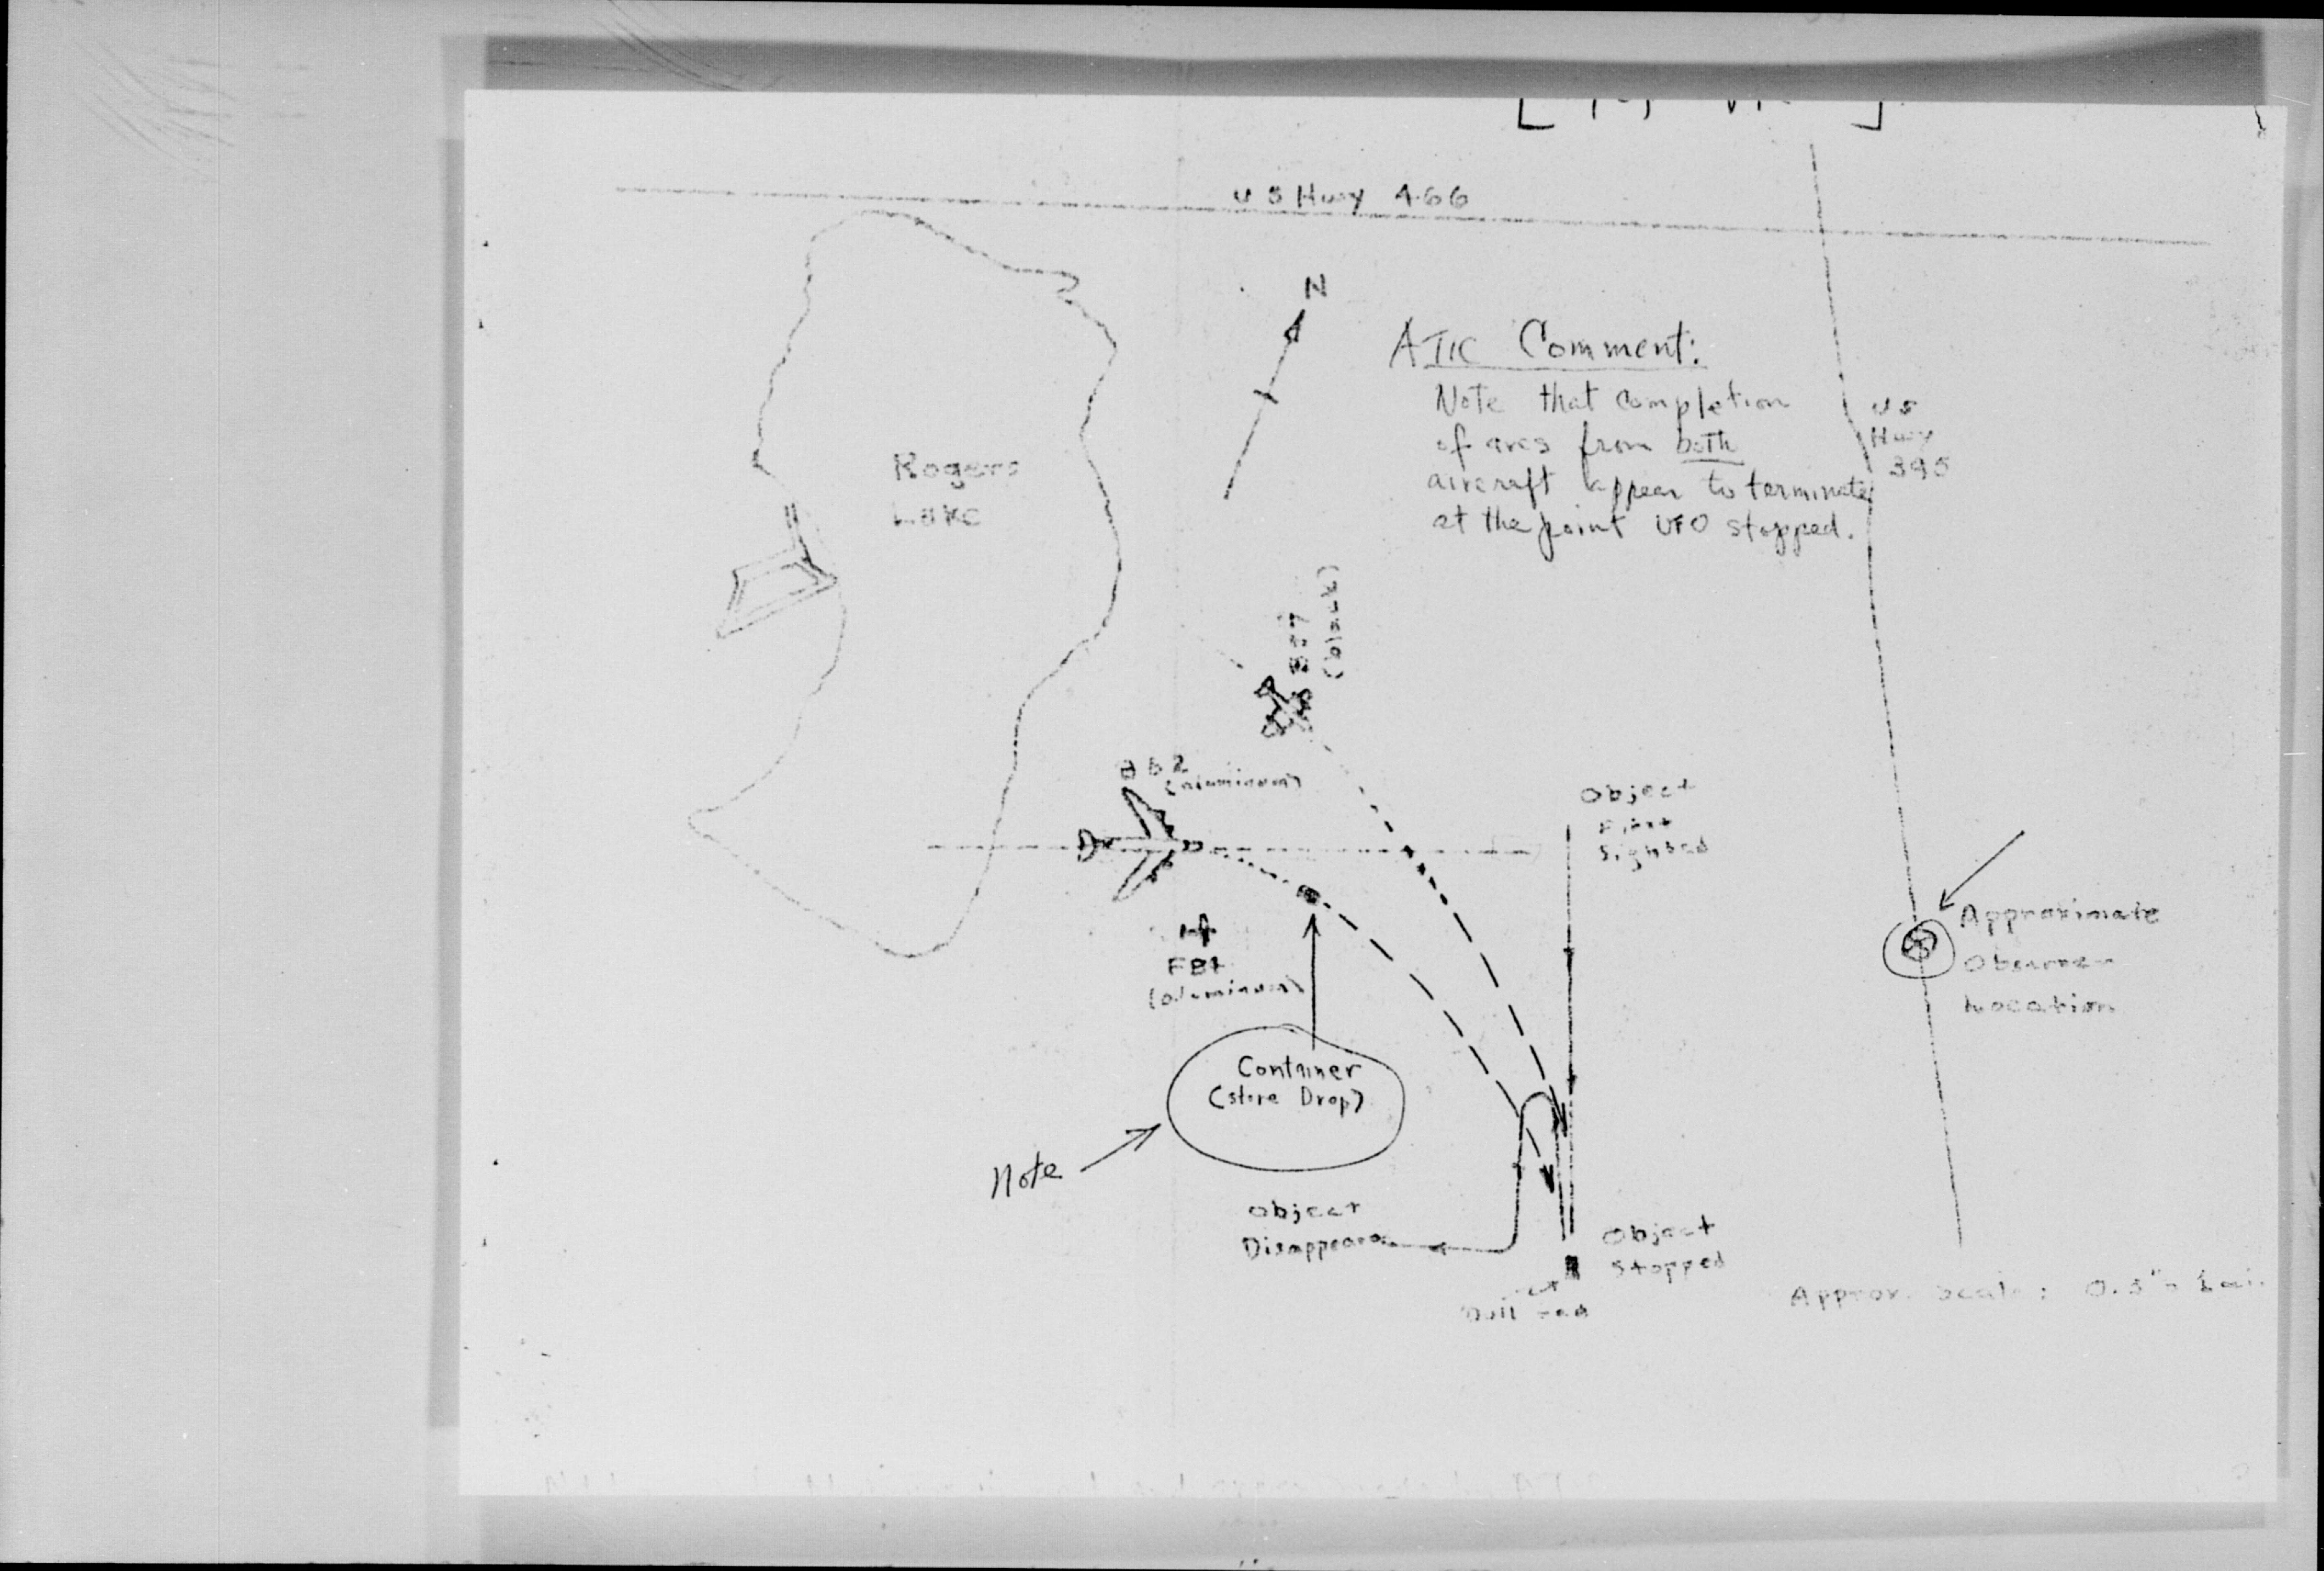 US Hwy 466
N
ATIC Comment:
Note that completion
of arcs from both
aircraft appear to terminate
at the point UFO stopped.
US
Hwy
395
Rogers
Lake
(black)
B52
(aluminum)
Object
First
Sighted
F84
(aluminum)
Approximate
Observer
Location
Container
(store Drop)
Note
Object
Disappears
Object
Stopped
Dull
Approx. Scale: